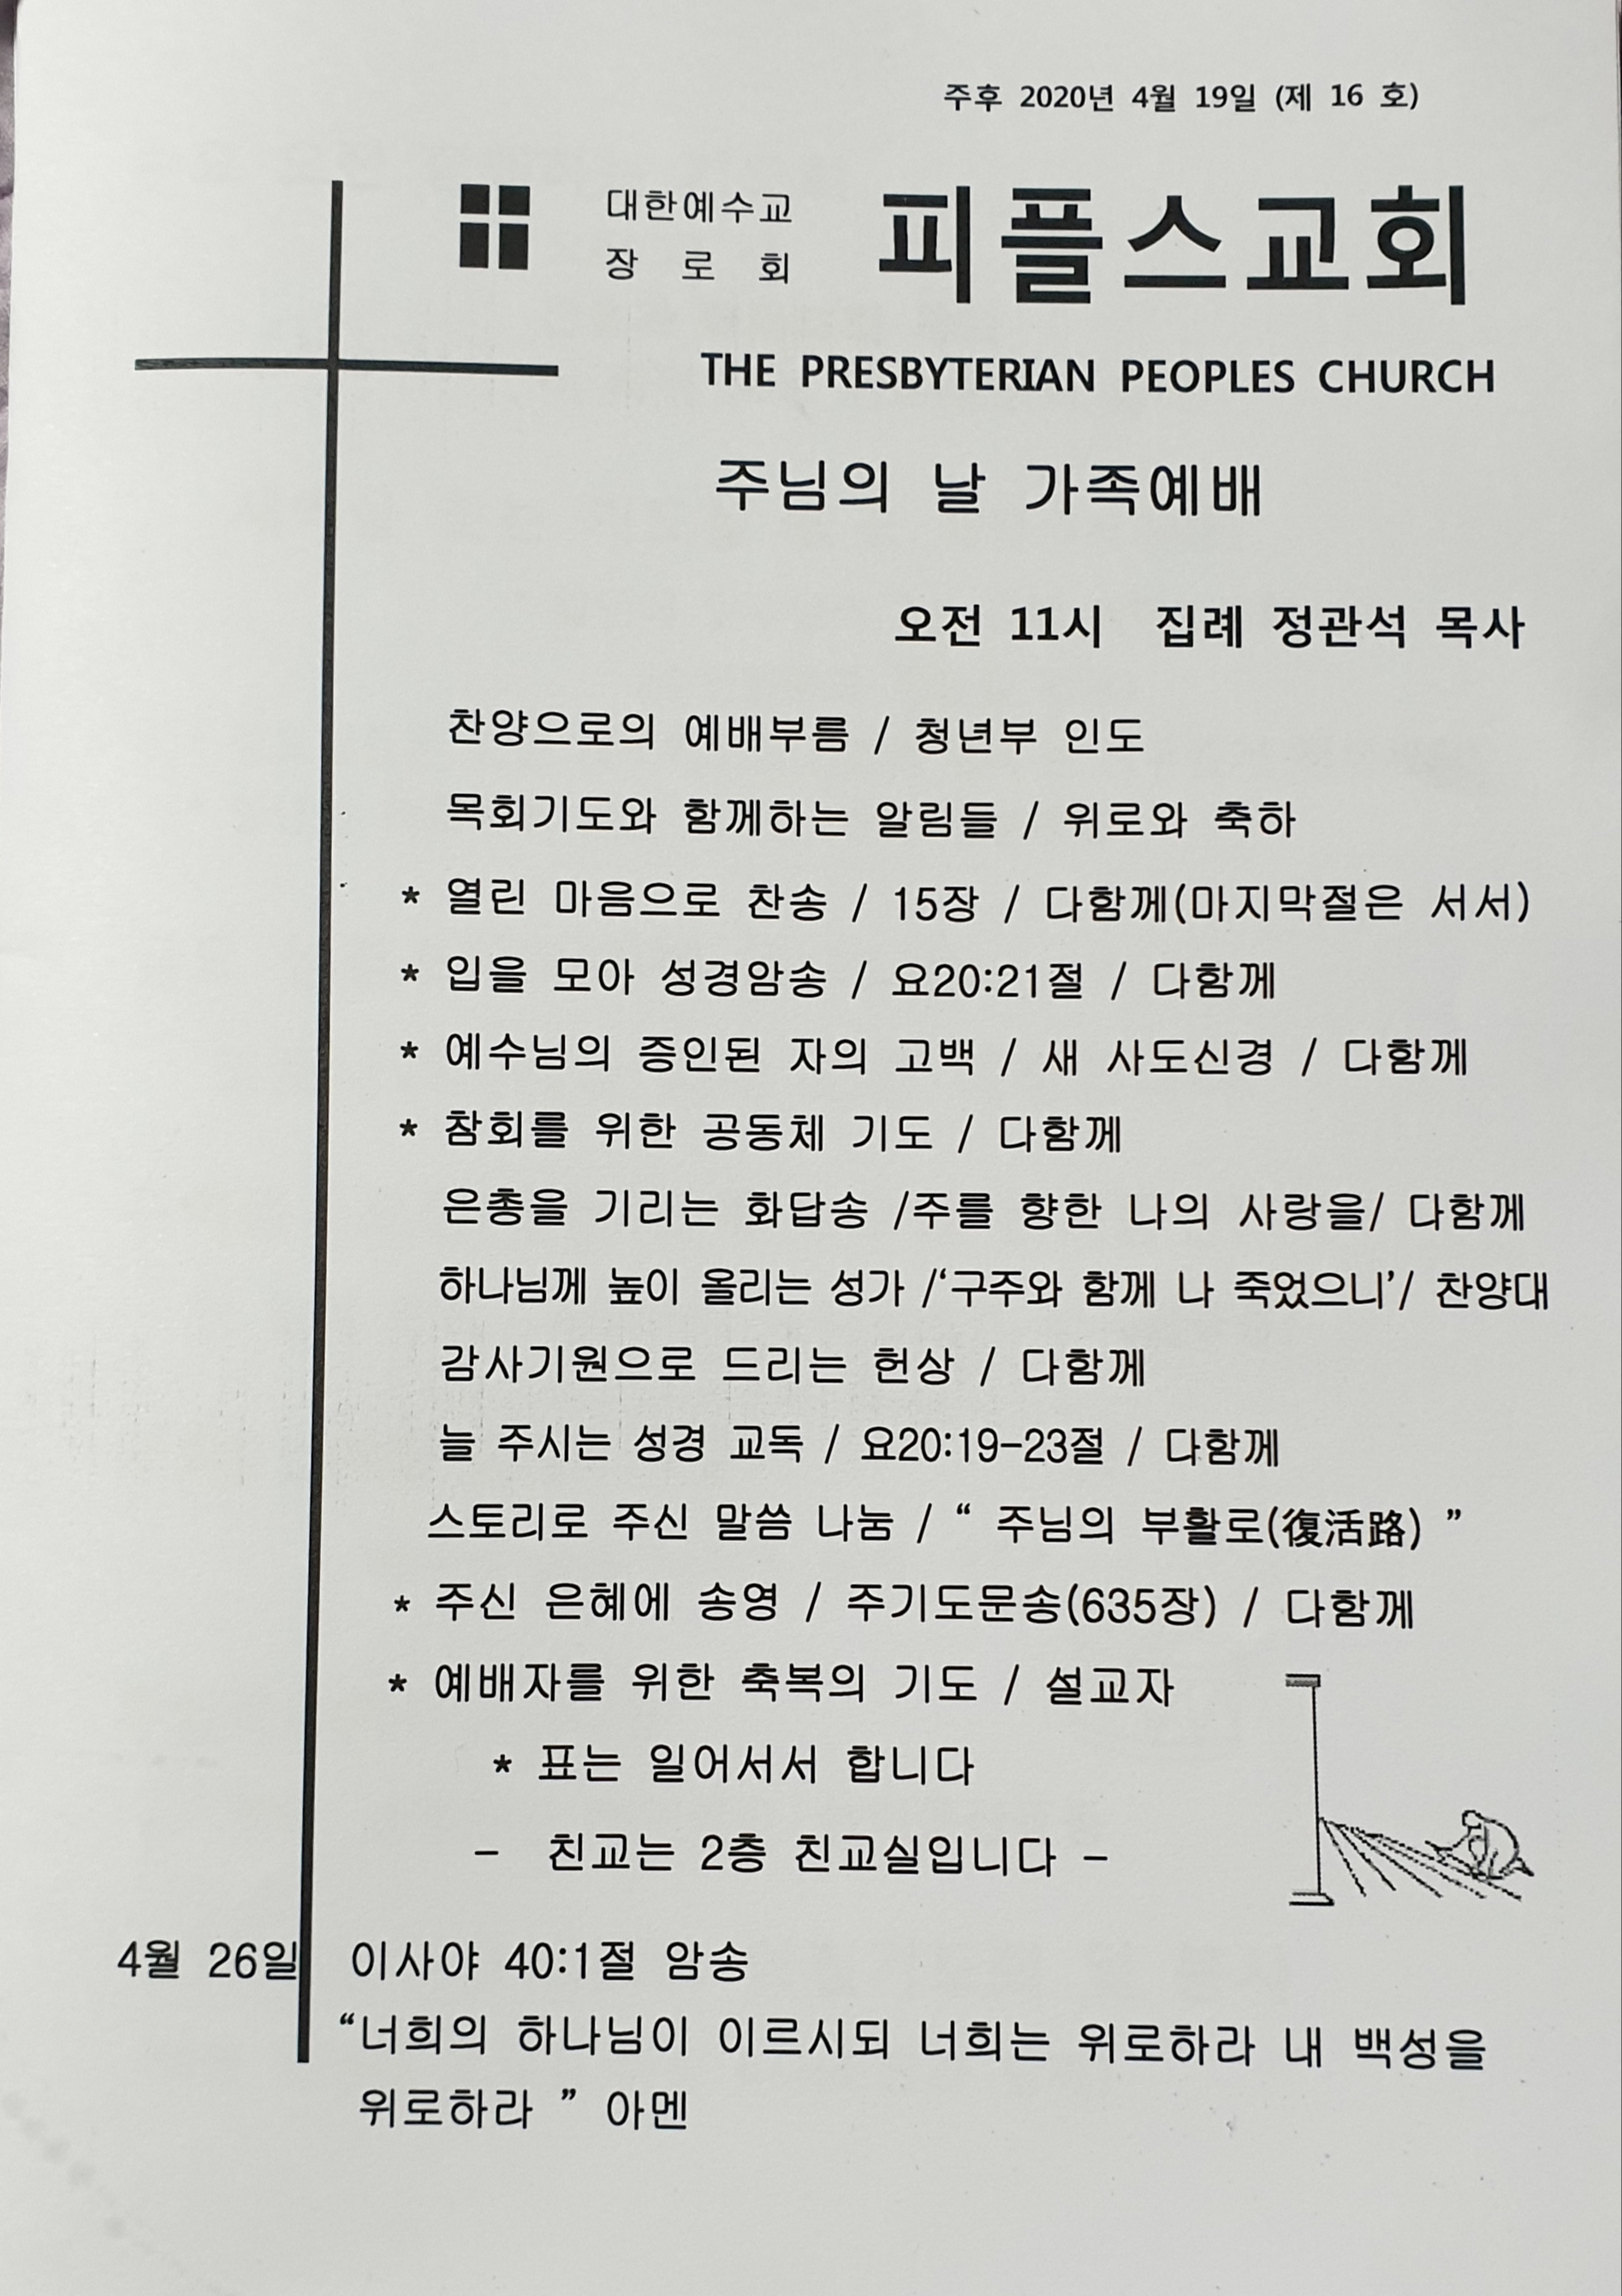 주후 2020년 4월 19일 (제 16 호)
대한예수교
장 로 회
피플스교회
THE PRESBYTERIAN PEOPLES CHURCH
주님의 날 가족예배
오전 11시 집례 정관석 목사
찬양으로의 예배부름 / 청년부 인도
목회기도와 함께하는 알림들 / 위로와 축하
* 열린 마음으로 찬송 / 15장 / 다함께(마지막절은 서서)
* 입을 모아 성경암송 / 요20:21절 / 다함께
* 예수님의 증인된 자의 고백 / 새 사도신경 / 다함께
* 참회를 위한 공동체 기도 / 다함께
은총을 기리는 화답송 /주를 향한 나의 사랑을/ 다함께
하나님께 높이 올리는 성가 /‘구주와 함께 나 죽었으니’/ 찬양대
감사기원으로 드리는 헌상 / 다함께
늘 주시는 성경 교독 / 요20:19-23절 / 다함께
스토리로 주신 말씀 나눔 / “ 주님의 부활로(復活路) ”
* 주신 은혜에 송영 / 주기도문송(635장) / 다함께
* 예배자를 위한 축복의 기도 / 설교자
* 표는 일어서서 합니다
- 친교는 2층 친교실입니다 -
4월 26일 이사야 40:1절 암송
“너희의 하나님이 이르시되 너희는 위로하라 내 백성을
위로하라 ” 아멘